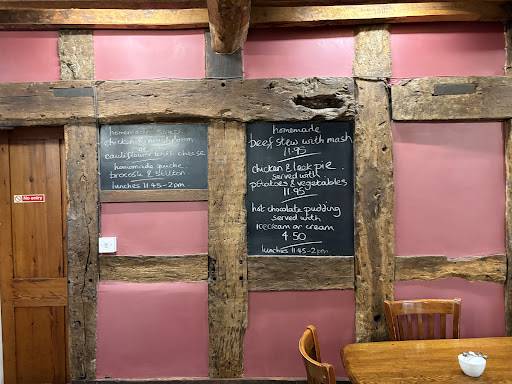 No entry
homemade soup
chicken & mushroom
or
cauliflower with cheese
homemade quiche
brocoli & stilton
lunches 11.45-2pm
homemade
beef stew with mash
11.95
chicken & leek pie.
served with
potatoes & vegetables
11.95
hot chocolate pudding
served with
icecream or cream
4.50
lunches 11.45-2pm